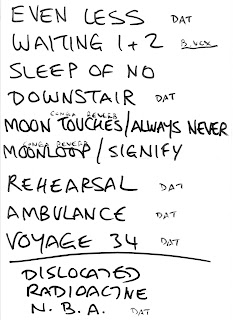 EVEN LESS DAT
WAITING 1+2 B.VOX
SLEEP OF NO
DOWNSTAIR DAT
CONGA REVERB
MOON TOUCHES/ALWAYS NEVER
CONGA REVERB
MOONLOOP/SIGNIFY
REHEARSAL DAT
AMBULANCE DAT
VOYAGE 34 DAT
DISLOCATED
RADIOACTIVE
N.B.A. DAT